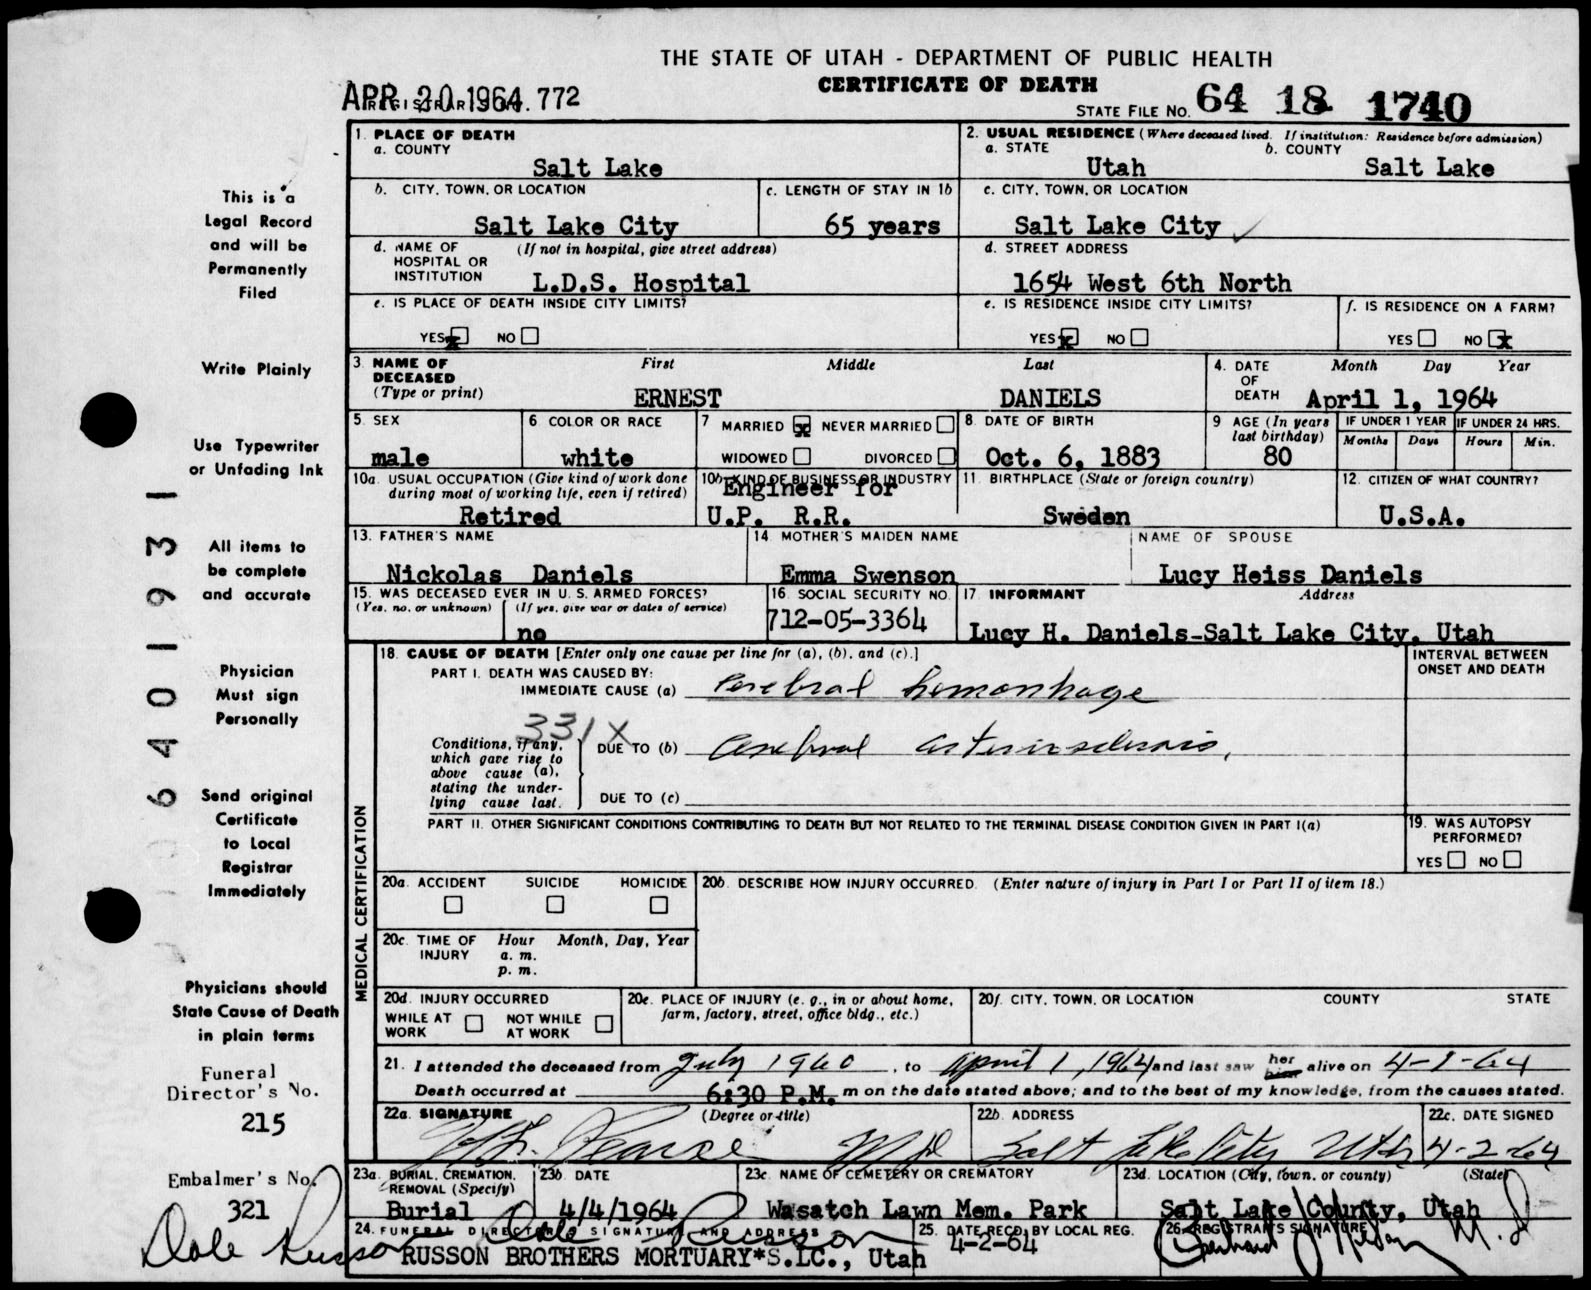 THE STATE OF UTAH - DEPARTMENT OF PUBLIC HEALTH
CERTIFICATE OF DEATH
APR 20 1964 772
STATE FILE NO. 64 18 1740
1. PLACE OF DEATH
a. COUNTY
Salt Lake
2. USUAL RESIDENCE (Where deceased lived. If institution: Residence before admission)
a. STATE b. COUNTY
Utah Salt Lake
b. CITY, TOWN, OR LOCATION
Salt Lake City
c. LENGTH OF STAY IN 1b
65 years
c. CITY, TOWN, OR LOCATION
Salt Lake City
d. NAME OF HOSPITAL OR INSTITUTION (If not in hospital, give street address)
L.D.S. Hospital
d. STREET ADDRESS
1654 West 6th North
e. IS PLACE OF DEATH INSIDE CITY LIMITS?
YES x NO
e. IS RESIDENCE INSIDE CITY LIMITS?
YES x NO
f. IS RESIDENCE ON A FARM?
YES NO x
3. NAME OF DECEASED (Type or print)
First Middle Last
ERNEST DANIELS
4. DATE OF DEATH Month Day Year
April 1, 1964
5. SEX
male
6 COLOR OR RACE
white
7 MARRIED x NEVER MARRIED
WIDOWED DIVORCED
8. DATE OF BIRTH
Oct. 6, 1883
9 AGE (In years last birthday)
80
IF UNDER 1 YEAR IF UNDER 24 HRS.
Months Days Hours Min.
10a. USUAL OCCUPATION (Give kind of work done during most of working life, even if retired)
Retired
10b. KIND OF BUSINESS OR INDUSTRY
Engineer for
U.P. R.R.
11. BIRTHPLACE (State or foreign country)
Sweden
12. CITIZEN OF WHAT COUNTRY?
U.S.A.
13. FATHER'S NAME
Nickolas Daniels
14 MOTHER'S MAIDEN NAME
Emma Swenson
NAME OF SPOUSE
Lucy Heiss Daniels
15. WAS DECEASED EVER IN U. S. ARMED FORCES?
(Yes, no, or unknown) (If yes, give war or dates of service)
no
16 SOCIAL SECURITY NO.
712-05-3364
17 INFORMANT Address
Lucy H. Daniels-Salt Lake City, Utah
18. CAUSE OF DEATH [Enter only one cause per line for (a), (b), and (c).]
INTERVAL BETWEEN ONSET AND DEATH
PART I. DEATH WAS CAUSED BY:
IMMEDIATE CAUSE (a) Cerebral hemorrhage
331X
Conditions, if any, which gave rise to above cause (a), stating the underlying cause last.
DUE TO (b) Cerebral arteriosclerosis,
DUE TO (c)
PART II. OTHER SIGNIFICANT CONDITIONS CONTRIBUTING TO DEATH BUT NOT RELATED TO THE TERMINAL DISEASE CONDITION GIVEN IN PART I(a)
19. WAS AUTOPSY PERFORMED?
YES NO
MEDICAL CERTIFICATION
20a. ACCIDENT SUICIDE HOMICIDE
20b. DESCRIBE HOW INJURY OCCURRED. (Enter nature of injury in Part I or Part II of item 18.)
20c. TIME OF INJURY Hour Month, Day, Year
a. m.
p. m.
20d. INJURY OCCURRED
WHILE AT WORK NOT WHILE AT WORK
20e. PLACE OF INJURY (e. g., in or about home, farm, factory, street, office bldg., etc.)
20f. CITY, TOWN, OR LOCATION COUNTY STATE
21. I attended the deceased from July 1960, to April 1, 1964 and last saw her him alive on 4-1-64
Death occurred at 6:30 P.M. m on the date stated above; and to the best of my knowledge, from the causes stated.
22a. SIGNATURE (Degree or title)
Pearse MD
22b. ADDRESS
Salt Lake City Utah
22c. DATE SIGNED
4-2-64
23a. BURIAL, CREMATION, REMOVAL (Specify)
Burial
23b. DATE
4/4/1964
23c. NAME OF CEMETERY OR CREMATORY
Wasatch Lawn Mem. Park
23d. LOCATION (City, town, or county) (State)
Salt Lake County, Utah
24. FUNERAL DIRECTOR'S SIGNATURE AND ADDRESS
Dale Russon
RUSSON BROTHERS MORTUARY*S.LC., Utah
25. DATE RECD. BY LOCAL REG.
4-2-64
26. REGISTRAR'S SIGNATURE
M.D
This is a
Legal Record
and will be
Permanently
Filed
Write Plainly
Use Typewriter
or Unfading Ink
All items to
be complete
and accurate
Physician
Must sign
Personally
Send original
Certificate
to Local
Registrar
Immediately
Physicians should
State Cause of Death
in plain terms
Funeral
Director's No.
215
Embalmer's No.
321
Dale Russon